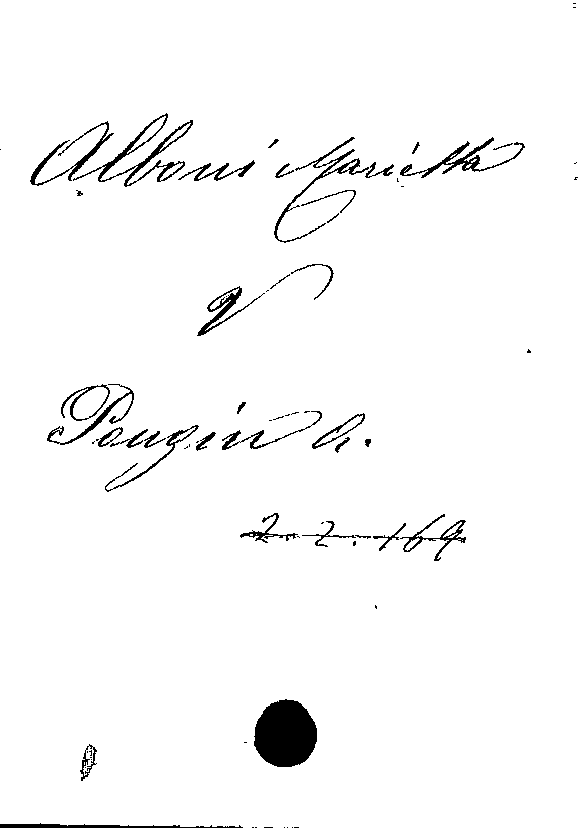 Alboni Marietta
V
Pougin A.
2. 2. 169